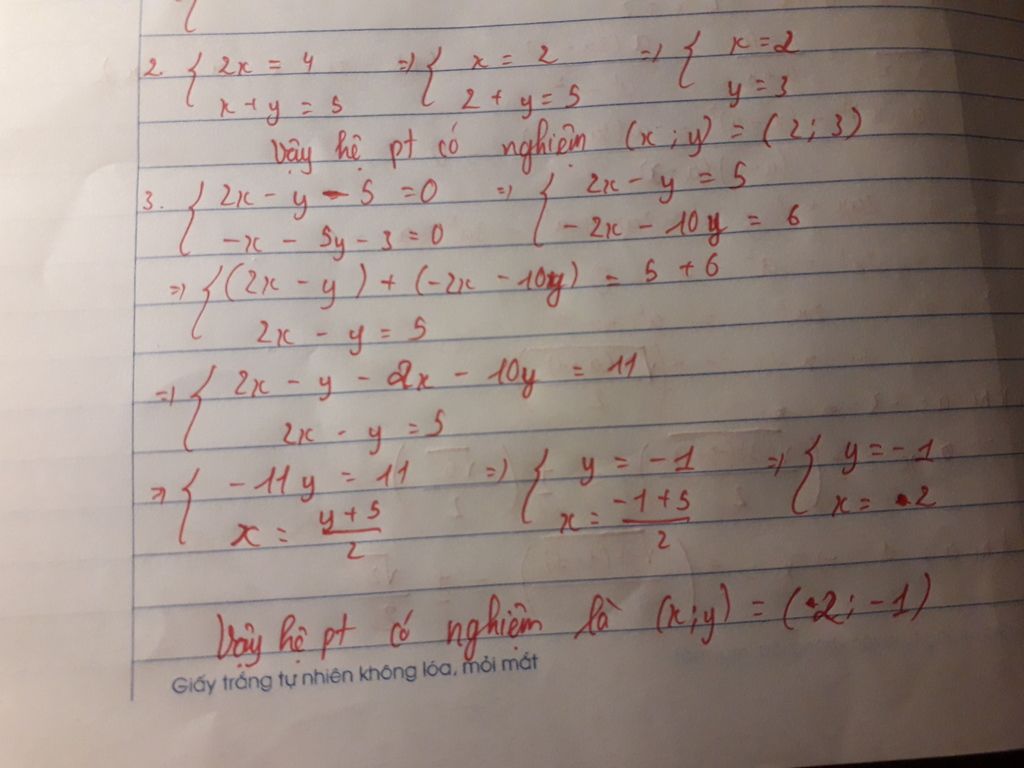 2. { 2x = 4 => { x = 2 => { x = 2
x + y = 5 2 + y = 5 y = 3
Vậy hệ pt có nghiệm (x ; y) = (2 ; 3)
3. { 2x - y - 5 = 0 => { 2x - y = 5
-x - 5y - 3 = 0 - 2x - 10y = 6
=> { (2x - y) + (-2x - 10y) = 5 + 6
2x - y = 5
=> { 2x - y - 2x - 10y = 11
2x - y = 5
=> { - 11y = 11 => { y = -1 => { y = -1
x = (y + 5)/2 x = (-1 + 5)/2 x = 2
Vậy hệ pt có nghiệm là (x ; y) = (2 ; -1)
Giấy trắng tự nhiên không lóa, mỏi mắt